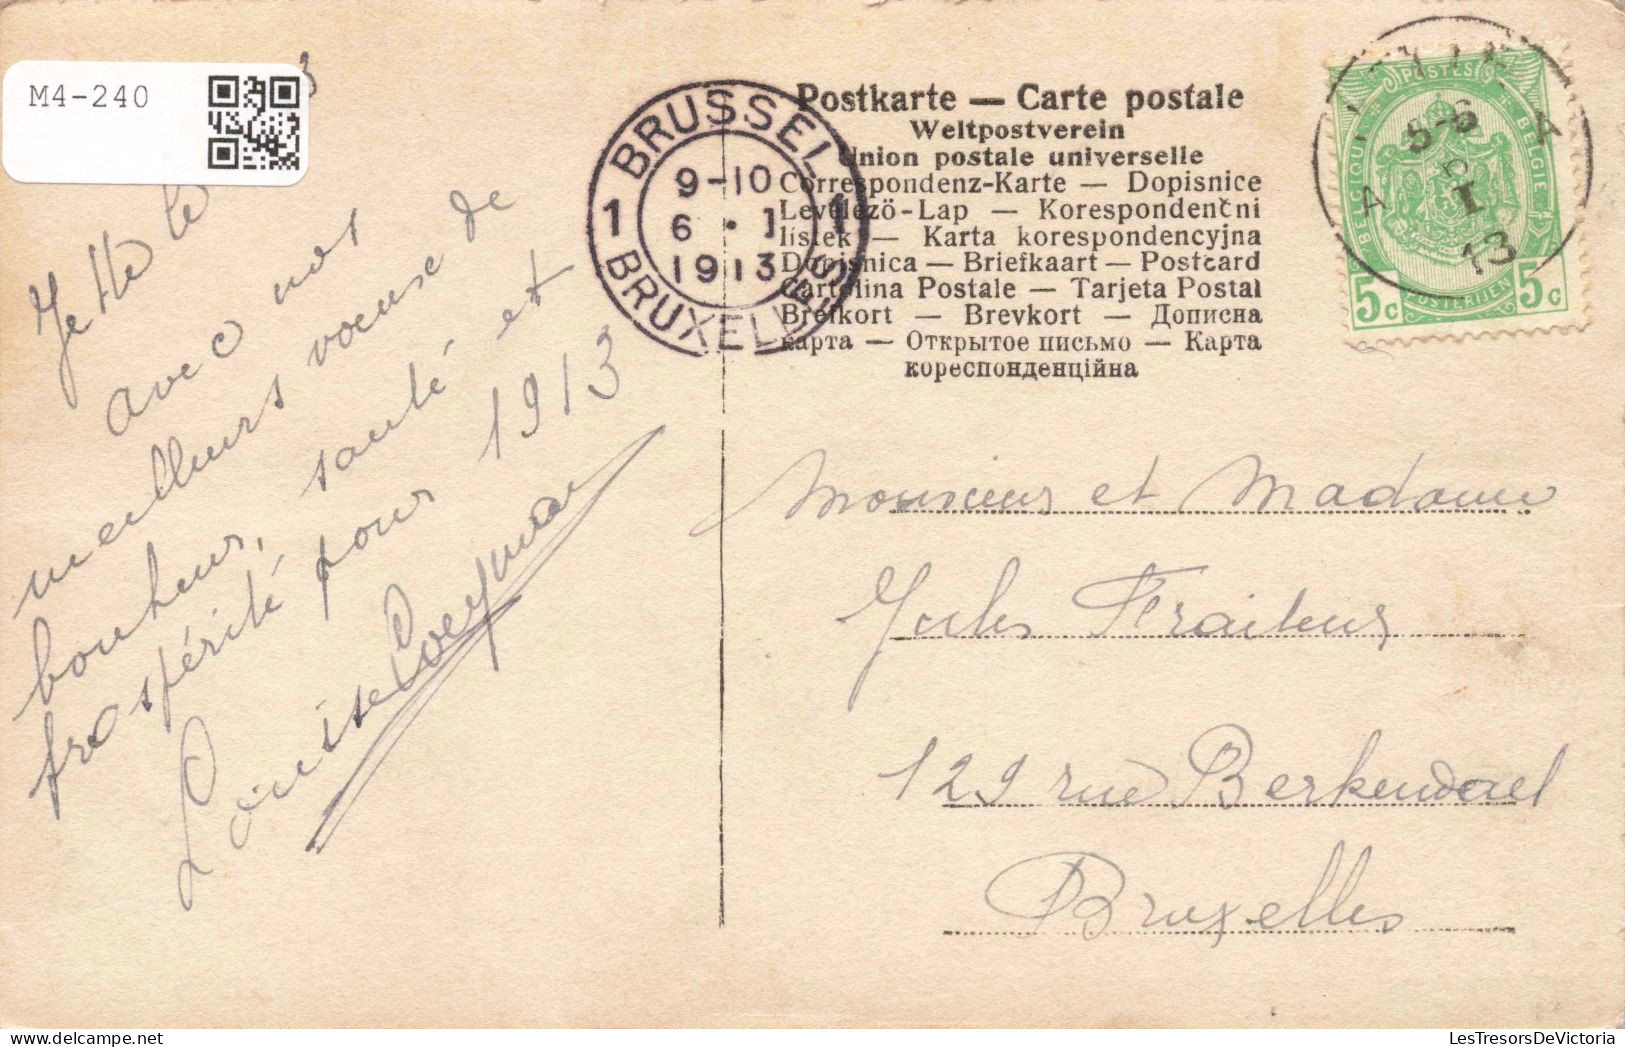 M4-240
Jette le
avec nos
meilleurs voeuse de
bonheur, santé et
prospérité pour 1913
Louise
Postkarte — Carte postale
Weltpostverein
Union postale universelle
Correspondenz-Karte — Dopisnice
Levelező-Lap — Korespondenční
lístek — Karta korespondencyjna
Dopisnica — Briefkaart — Postcard
Cartolina Postale — Tarjeta Postal
Brefkort — Brevkort — Дописна
карта — Открытое письмо — Карта
кореспонденційна
BRUSSEL
1 9-10 1
6 • I
1913
BRUXELLES
POSTES
BELGIQUE BELGIË
5c POSTERIJEN 5c
5-6
I
13
A A
Monsieur et Madame
Jules Fraiteur
129 rue Berkendael
Bruxelles
LesTresorsDeVictoria